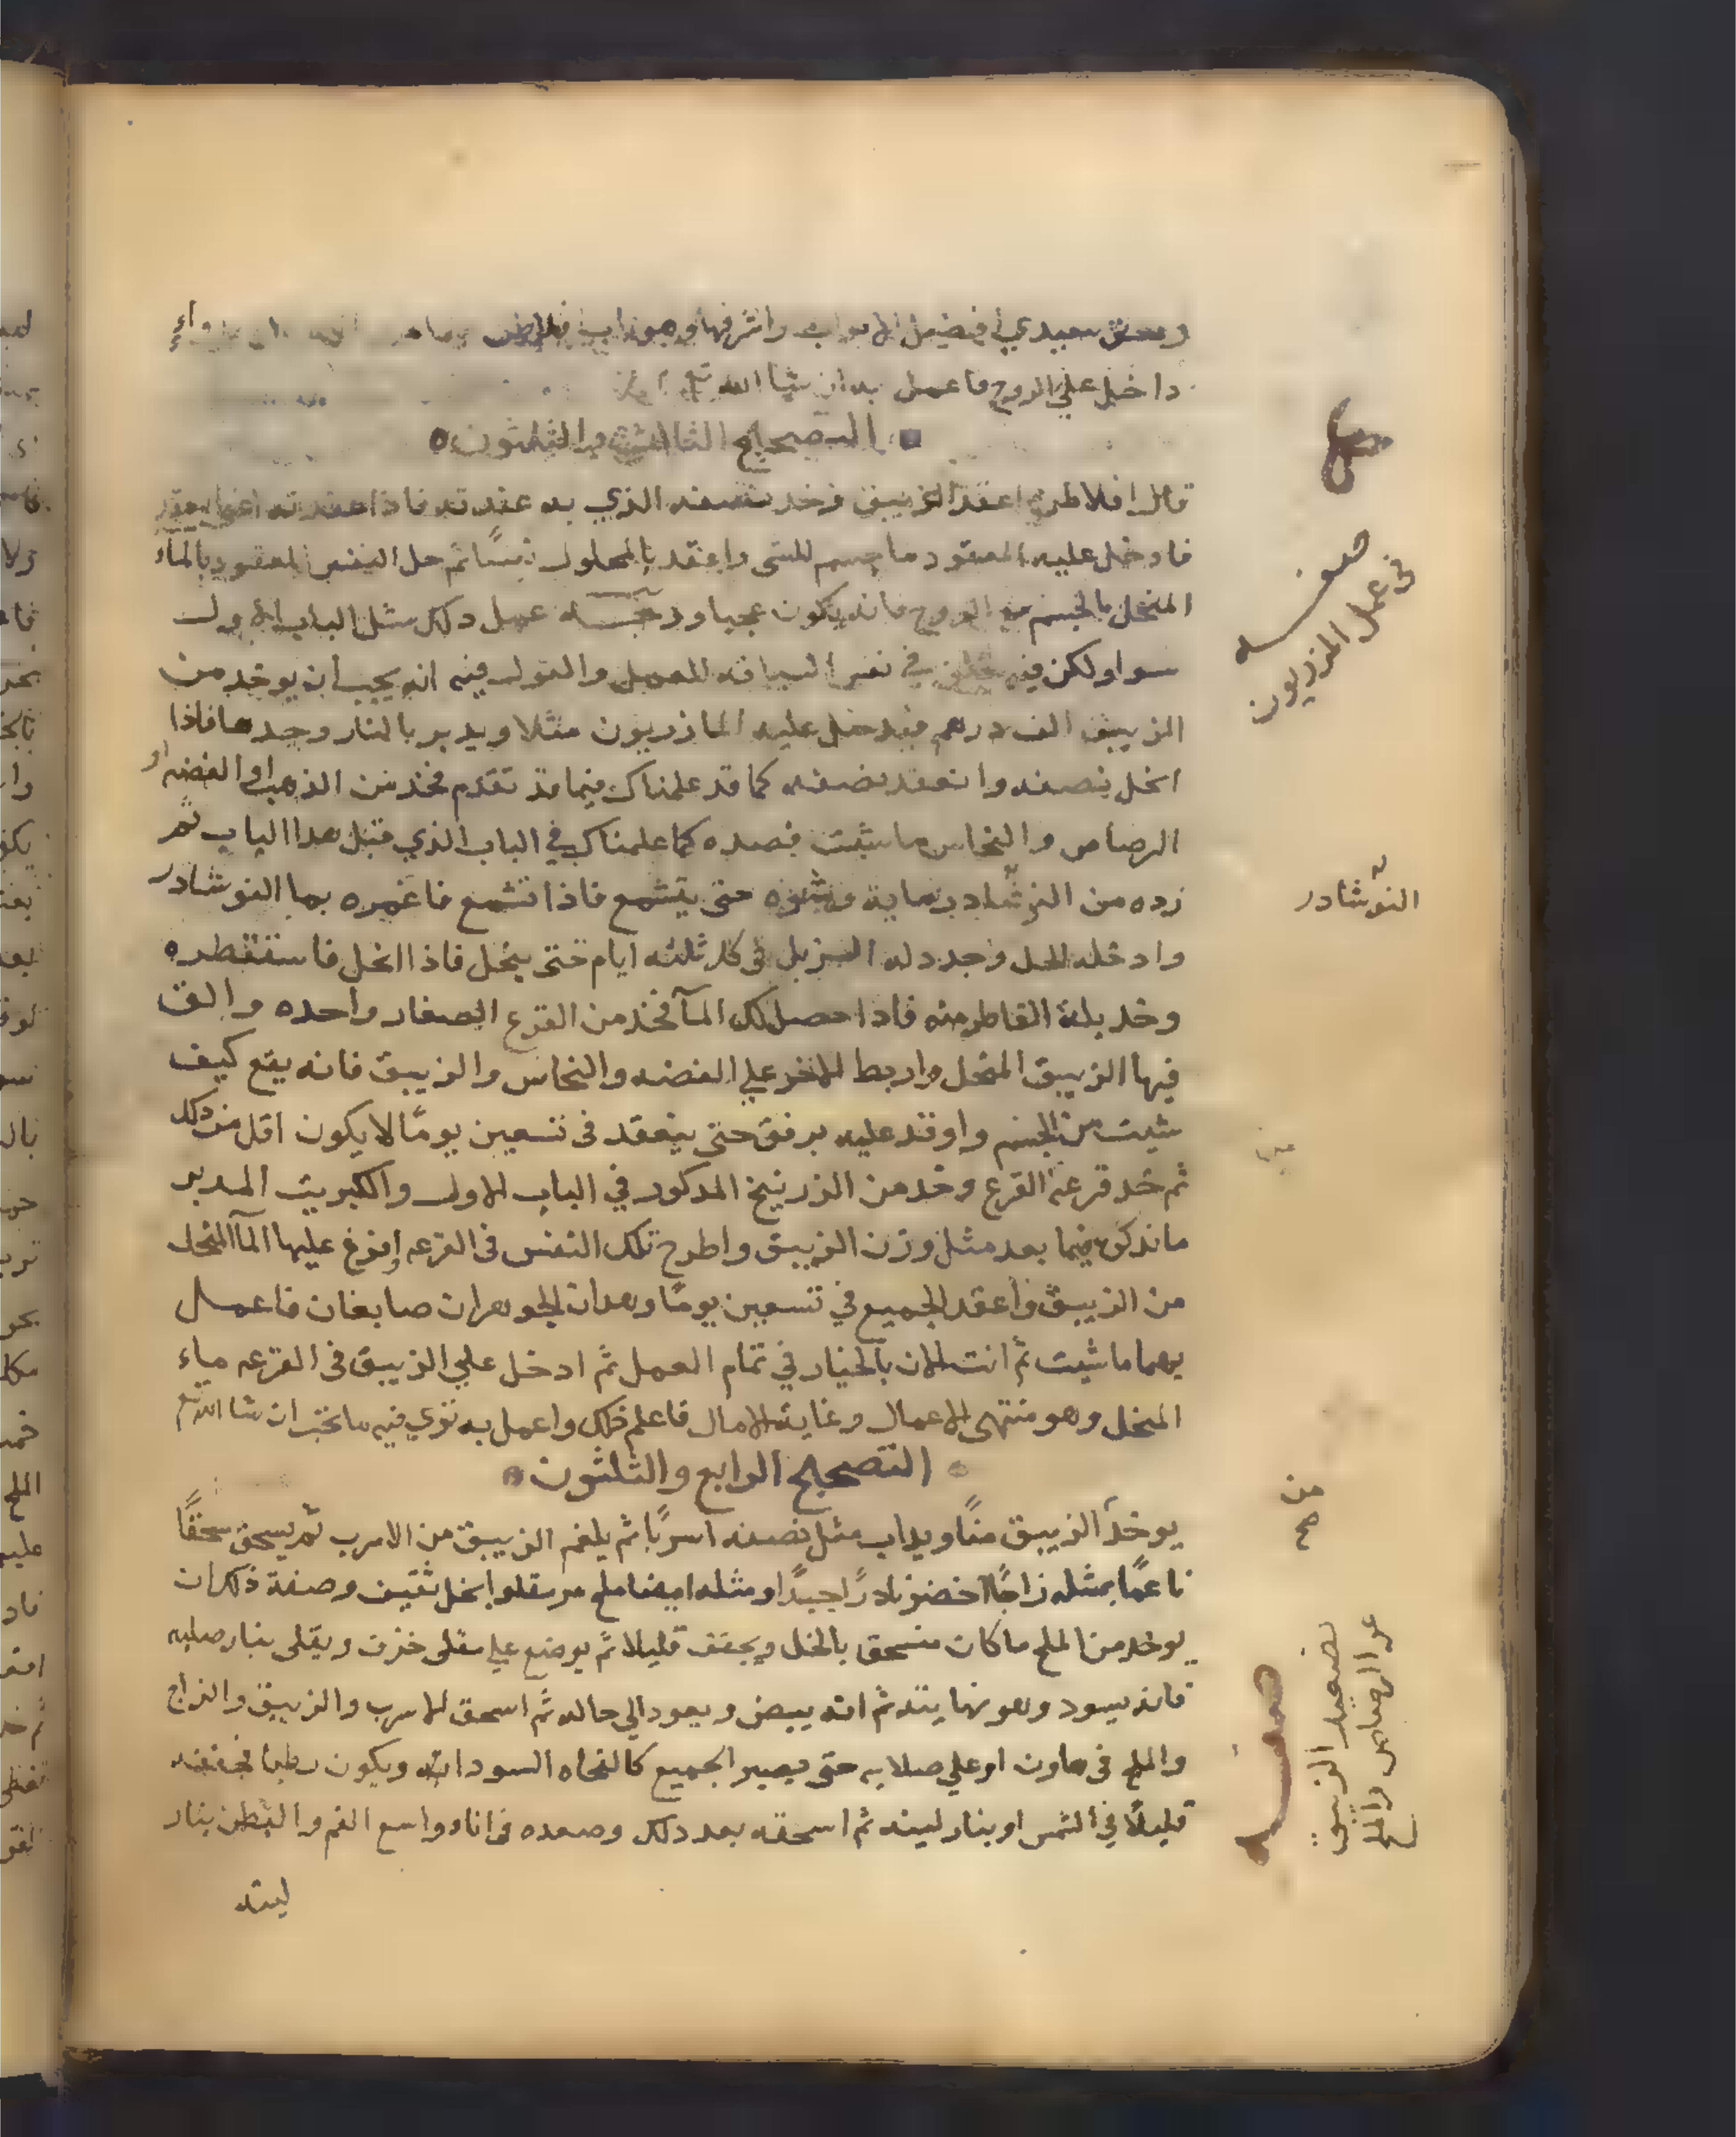 وحق سيدي افضل الابواب واشرفها وهو باب افلاطن
داخل علي الروح فاعمل به ان شا الله تع
التصحيح الثالث والثلثون
قال افلاطن اعقد الزيبق فخد نصفه الذي به عقدته فاذا عقدته
فادخل عليه المعقود ماجسم للشى واعقد بالمحلول نفسًا ثم حل النفس المعقود بالماء
المنحل بالجسم مع الروح فانه يكون عجيبا ودخـــله عمل دلك مثل الباب الاول
سوا ولكن فيه في نفس السياقه للعمل والقول فيه انه يجب ان يوخد من
الزيبق الف درهم فيدخل عليه المازريون مثلا ويدبر بالنار وجدها فاذا
انحل نصفه وانعقد نصفه كما قد علمناك فيما قد تقدم فخذ من الذهب او الفضه او
الرصاص والنحاس ما شيت فصده كما علمناك في الباب الذي قبل هدا الباب ثم
زده من النوشادر ماية وشوه حتى يتشمع فاذا تشمع فاغمره بما النوشادر
وادخله الحل وجدد له الزبل فى كل ثلثه ايام حتى ينحل فاذا انحل فاستقطره
وخد بلة القاطر منه فاذا حصل لك المآ فخذ من القرع الصغار واحده والق
فيها الزيبق المنحل واربط الاخر علي الفضه والنحاس والزيبق فانه يقع كيف
شيت من الجسم واوقد عليه برفق حتى ينعقد فى تسعين يومًا لا يكون اقل من دلك
ثم خد قرعة القرع وخد من الزرنيخ المدكور في الباب الاول والكبريت المدبر
ما نذكره فيما بعد مثل وزن الزيبق واطرح تلك النفس فى القرعه وافرغ عليها المآ المنحل
من الزيبق واعقد الجميع في تسعين يومًا وهدان الجوهران صابغان فاعمل
بهما ما شيت ثم انت الان بالخيار في تمام العمل ثم ادخل علي الزيبق فى القرعه ماء
المنحل وهو منتهى الاعمال وغاية الامال فاعلم ذلك واعمل به تري فيه ما تحب ان شا الله تع
التصحيح الرابع والثلثون
يوخد الزيبق منًا ويداب مثل نصفه اسربًا ثم يلغم الزيبق من الاسرب ثم يسحق سحقًا
ناعمًا بمثله زاجًا اخضر نادرًا جيدًا ومثله ايضا ملح مر مقلوا بخل ثقيف وصفة ذلك ان
يوخد من الملح ما كان منسحق بالخل ويجفف قليلا ثم يوضع علي مقلى خزف ويقلى بنار صلبه
فانه يسود وهو نهايته ثم انه يبيض ويعود الي حاله ثم اسحق الاسرب والزيبق والزاج
والملح فى هاون او علي صلايه حتى يصير الجميع كالحماه السودا ويكون رطبا فجففه
قليلًا في الشمس او بنار لينه ثم اسحقه بعد دلك وصعده فى اناء واسع الفم والبطن بنار
لينه
صفه
فى عمل المازريون
النوشادر
من
صح
صفه
تصعيد الزيبق
عن الرصاص والملح